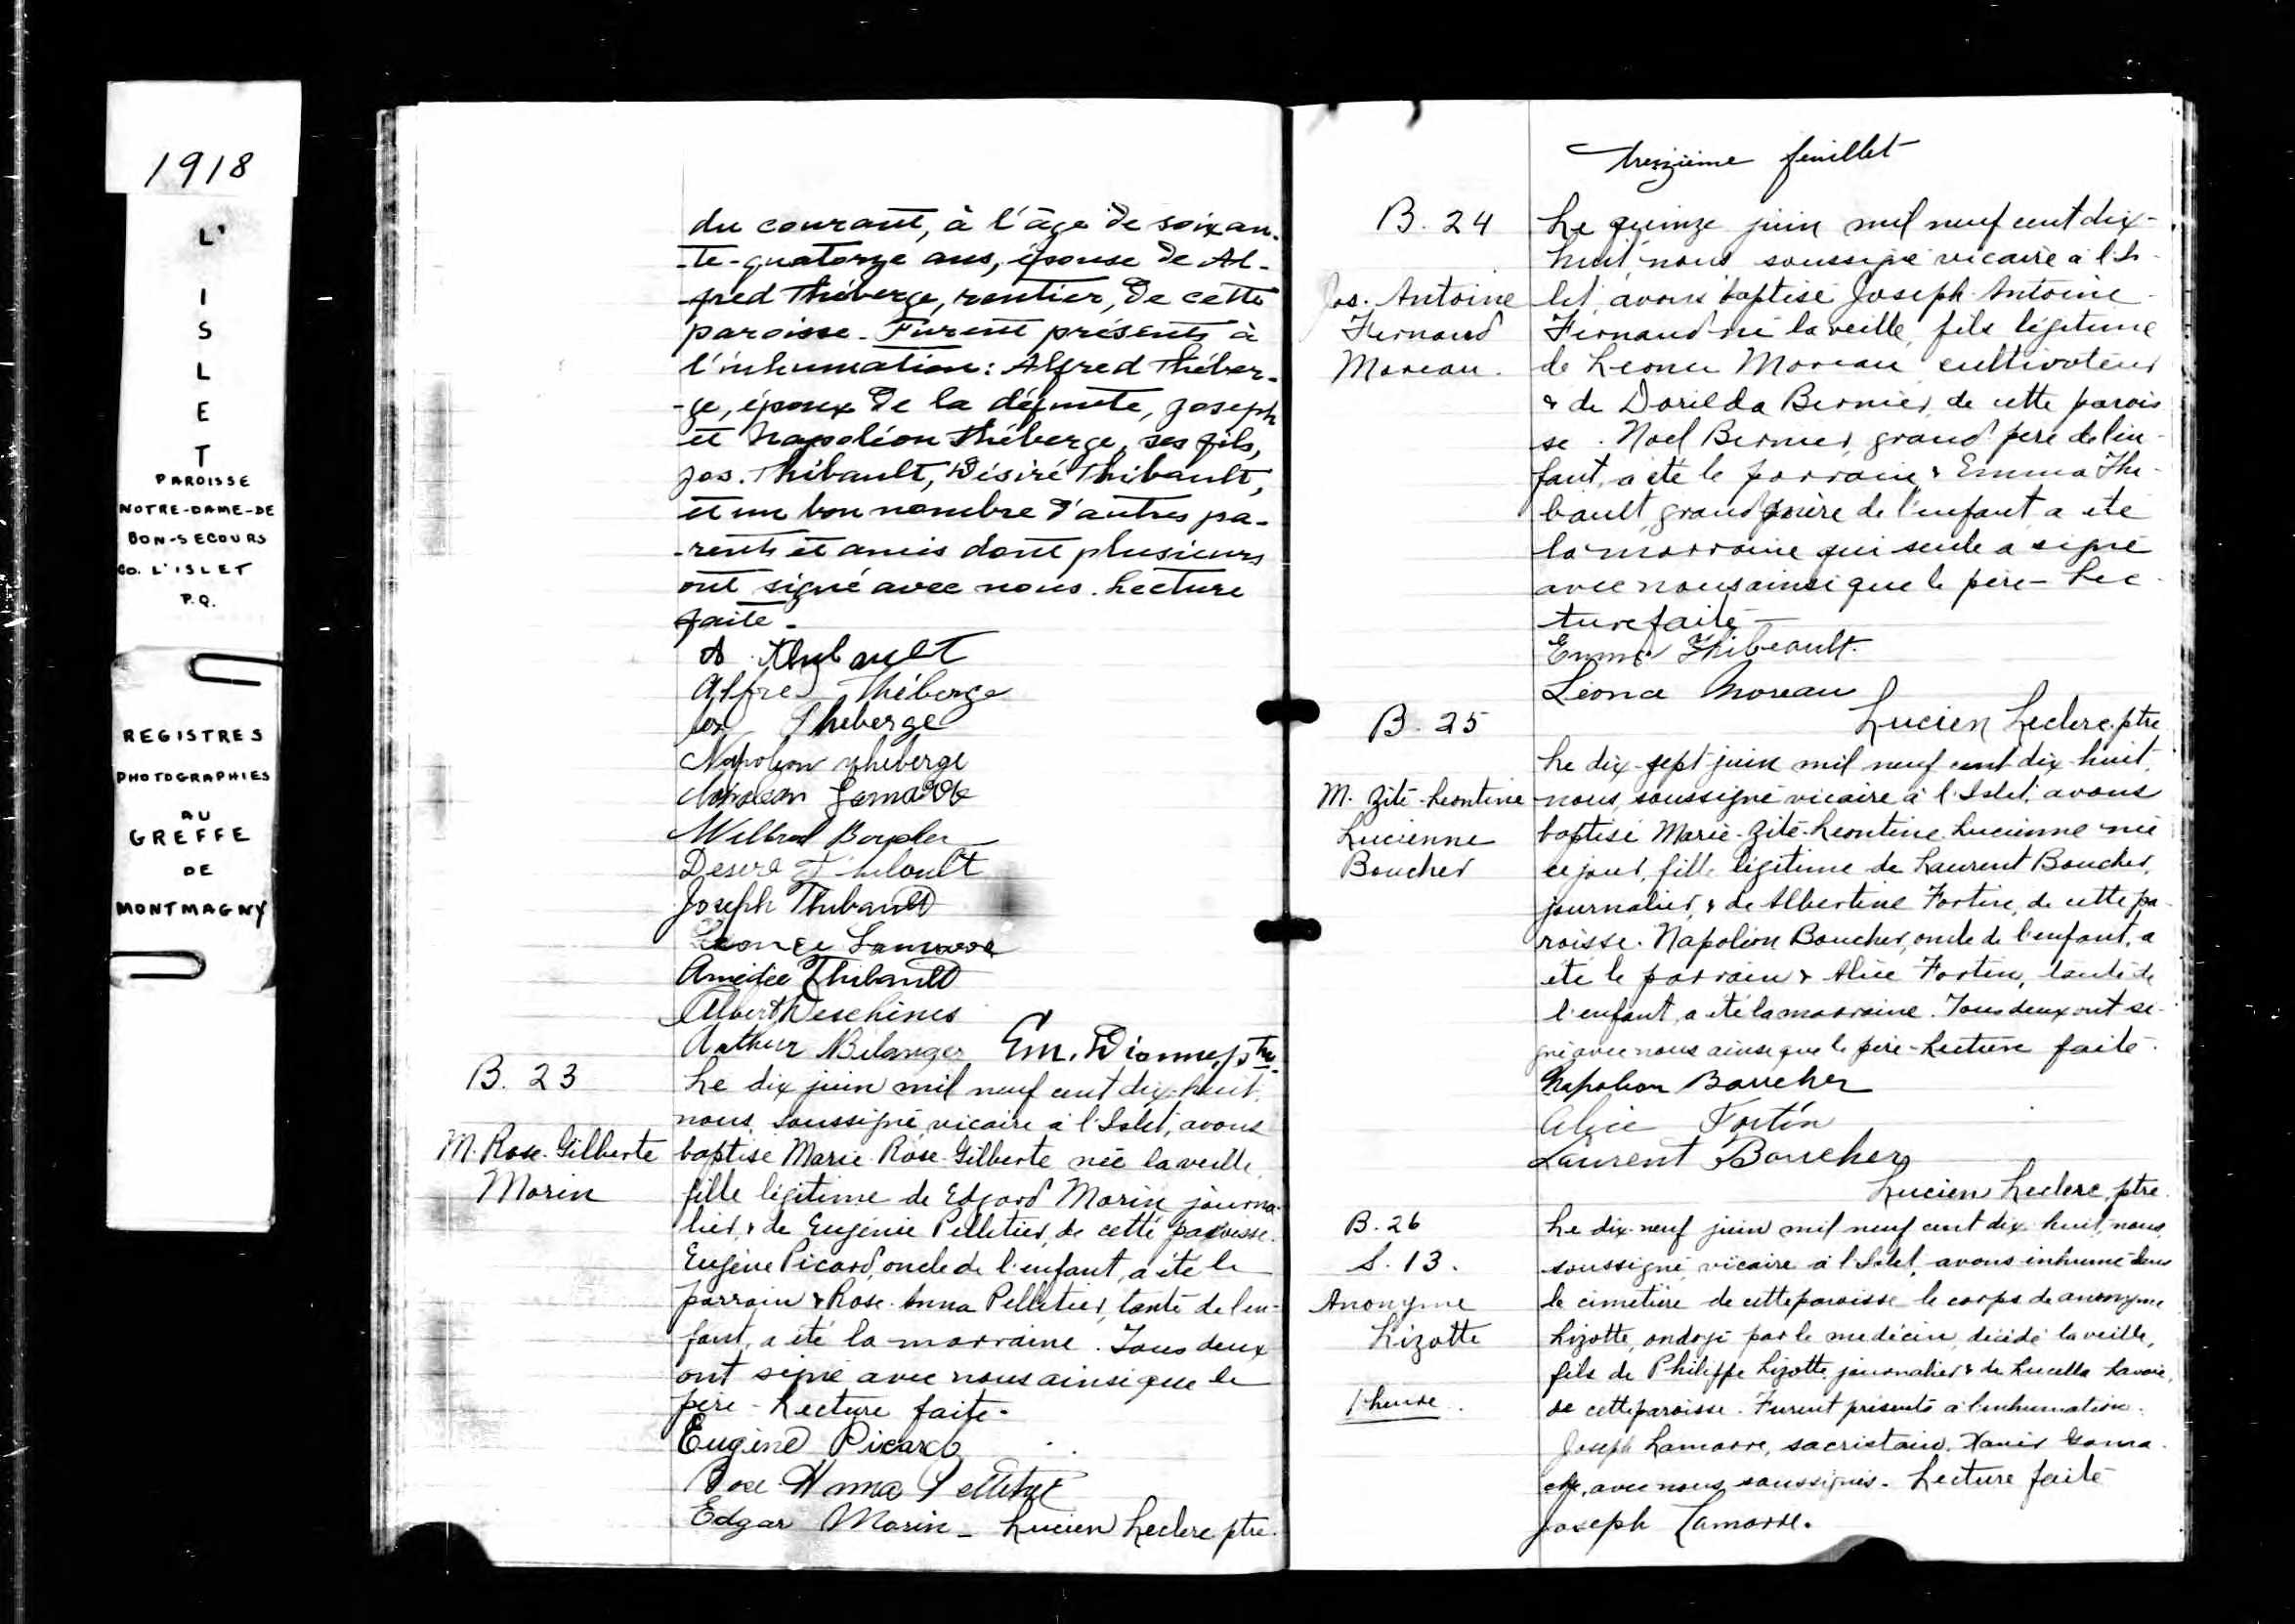 1918
L'
I
S
L
E
T
PAROISSE
NOTRE-DAME-DE
BON-SECOURS
CO. L'ISLET
P.Q.
REGISTRES
PHOTOGRAPHIES
AU
GREFFE
DE
MONTMAGNY
du courant, à l'âge de soixan-
-te-quatorze ans, épouse de Al-
fred Théberge, rentier, de cette
paroisse. Furent présents à
l'inhumation: Alfred Théber-
-ge, époux de la défunte, Joseph
et Napoléon Théberge, ses fils,
Jos. Thibault, Désiré Thibault,
et un bon nombre d'autres pa-
-rents et amis dont plusieurs
ont signé avec nous. Lecture
faite.
A. Thibault
Alfred Théberge
Jos Theberge
Napoleon Theberge
Wilbrod Boucher
Desire Thibault
Joseph Thibault
Leonce Lamarre
Amédée Thibault
Albert Deschênes
Arthur Bélanger Em. Dionne, ptre
B. 23
M. Rose-Gilberte
Morin
Le dix juin mil neuf cent dix-huit,
nous, soussigné, vicaire à l'Islet, avons
baptisé Marie-Rose-Gilberte née la veille,
fille légitime de Edgard Morin journa-
lier, & de Eugénie Pelletier, de cette paroisse.
Eugène Picard, oncle de l'enfant, a été le
parrain & Rose-Anna Pelletier, tante de l'en-
fant, a été la marraine. Tous deux
ont signé avec nous ainsi que le
père - Lecture faite.
Eugène Picard
Rose Anna Pelletier
Edgar Morin - Lucien Leclerc ptre.
treizième feuillet
B. 24
Jos. Antoine
Fernand
Moreau.
Le quinze juin mil neuf cent dix-
huit, nous soussigné vicaire à l'Is-
let, avons baptisé Joseph-Antoine-
Fernand né la veille, fils légitime
de Leonce Moreau cultivateur
& de Dorilda Bernier, de cette parois
se. Noel Bernier, grand père de l'en-
fant, a été le parrain, & Emma Thi-
bault, grand'mère de l'enfant a été
la marraine qui seule a signé
avec nous ainsi que le père - Lec-
ture faite -
Emma Thibeault.
Léonce Moreau
Lucien Leclerc, ptre
B. 25
M. Zité-Leontine
Lucienne
Boucher
Le dix-sept juin mil neuf cent dix-huit,
nous, soussigné vicaire à l'Islet, avons
baptisé Marie-Zité-Leontine-Lucienne née
ce jour, fille légitime de Laurent Boucher,
journalier, & de Albertine Fortin, de cette pa-
roisse. Napoléon Boucher, oncle de l'enfant, a
été le parrain & Alice Fortin, tante de
l'enfant, a été la marraine. Tous deux ont si-
gné avec nous ainsi que le père - Lecture faite.
Napoleon Boucher
Alice Fortin
Laurent Boucher
Lucien Leclerc, ptre.
B. 26
S. 13.
Anonyme
Lizotte
1 heure.
Le dix-neuf juin mil neuf cent dix-huit, nous,
soussigné, vicaire à l'Islet, avons inhumé dans
le cimetière de cette paroisse le corps de anonyme
Lizotte, ondoyé par le medecin, décédé la veille,
fils de Philippe Lizotte, journalier & de Lucella Lavoie,
de cette paroisse. Furent présents à l'inhumation:
Joseph Lamarre, sacristain, Xavier Gama-
che, avec nous soussignés. Lecture faite
Joseph Lamarre.